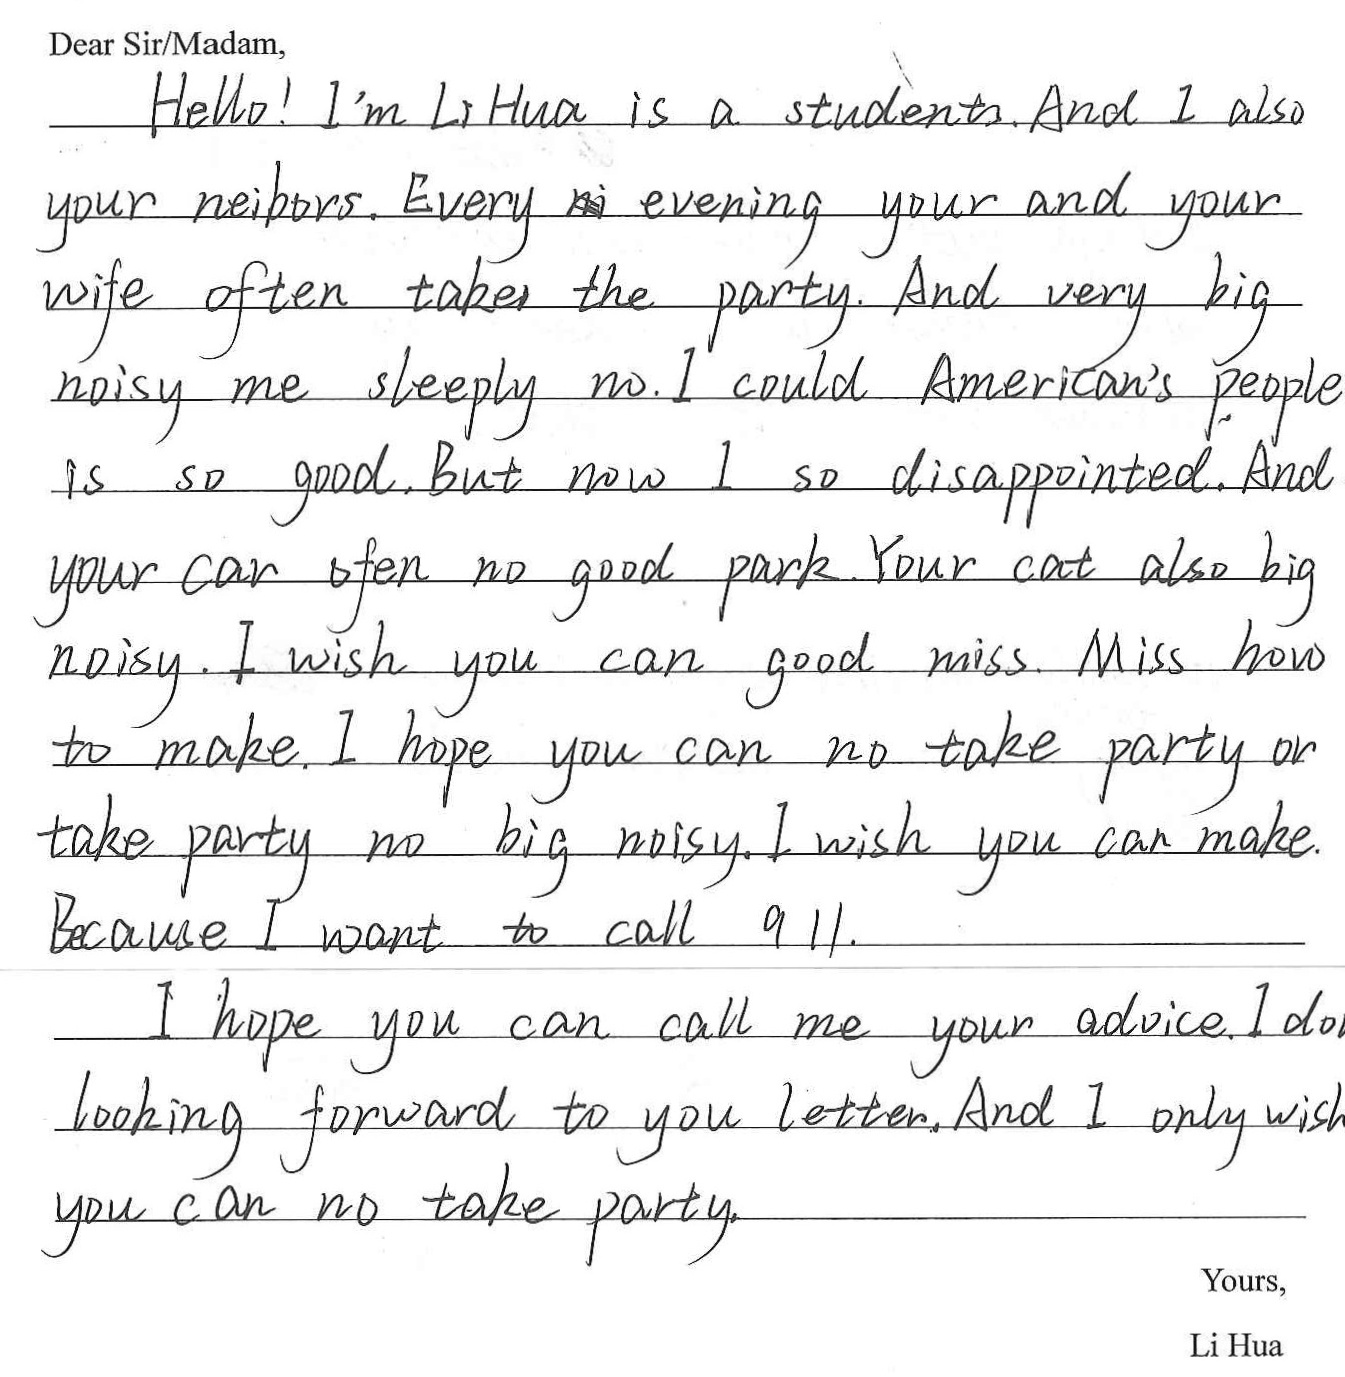 Dear Sir/Madam,
Hello! I'm Li Hua is a students. And I also
your neibors. Every evening your and your
wife often takes the party. And very big
noisy me sleeply no. I could American's people
is so good. But now I so disappointed. And
your car ofen no good park. Your cat also big
noisy. I wish you can good miss. Miss how
to make. I hope you can no take party or
take party no big noisy. I wish you can make.
Because I want to call 911.
I hope you can call me your advice. I
looking forward to you letter. And I only wish
you can no take party.
Yours,
Li Hua